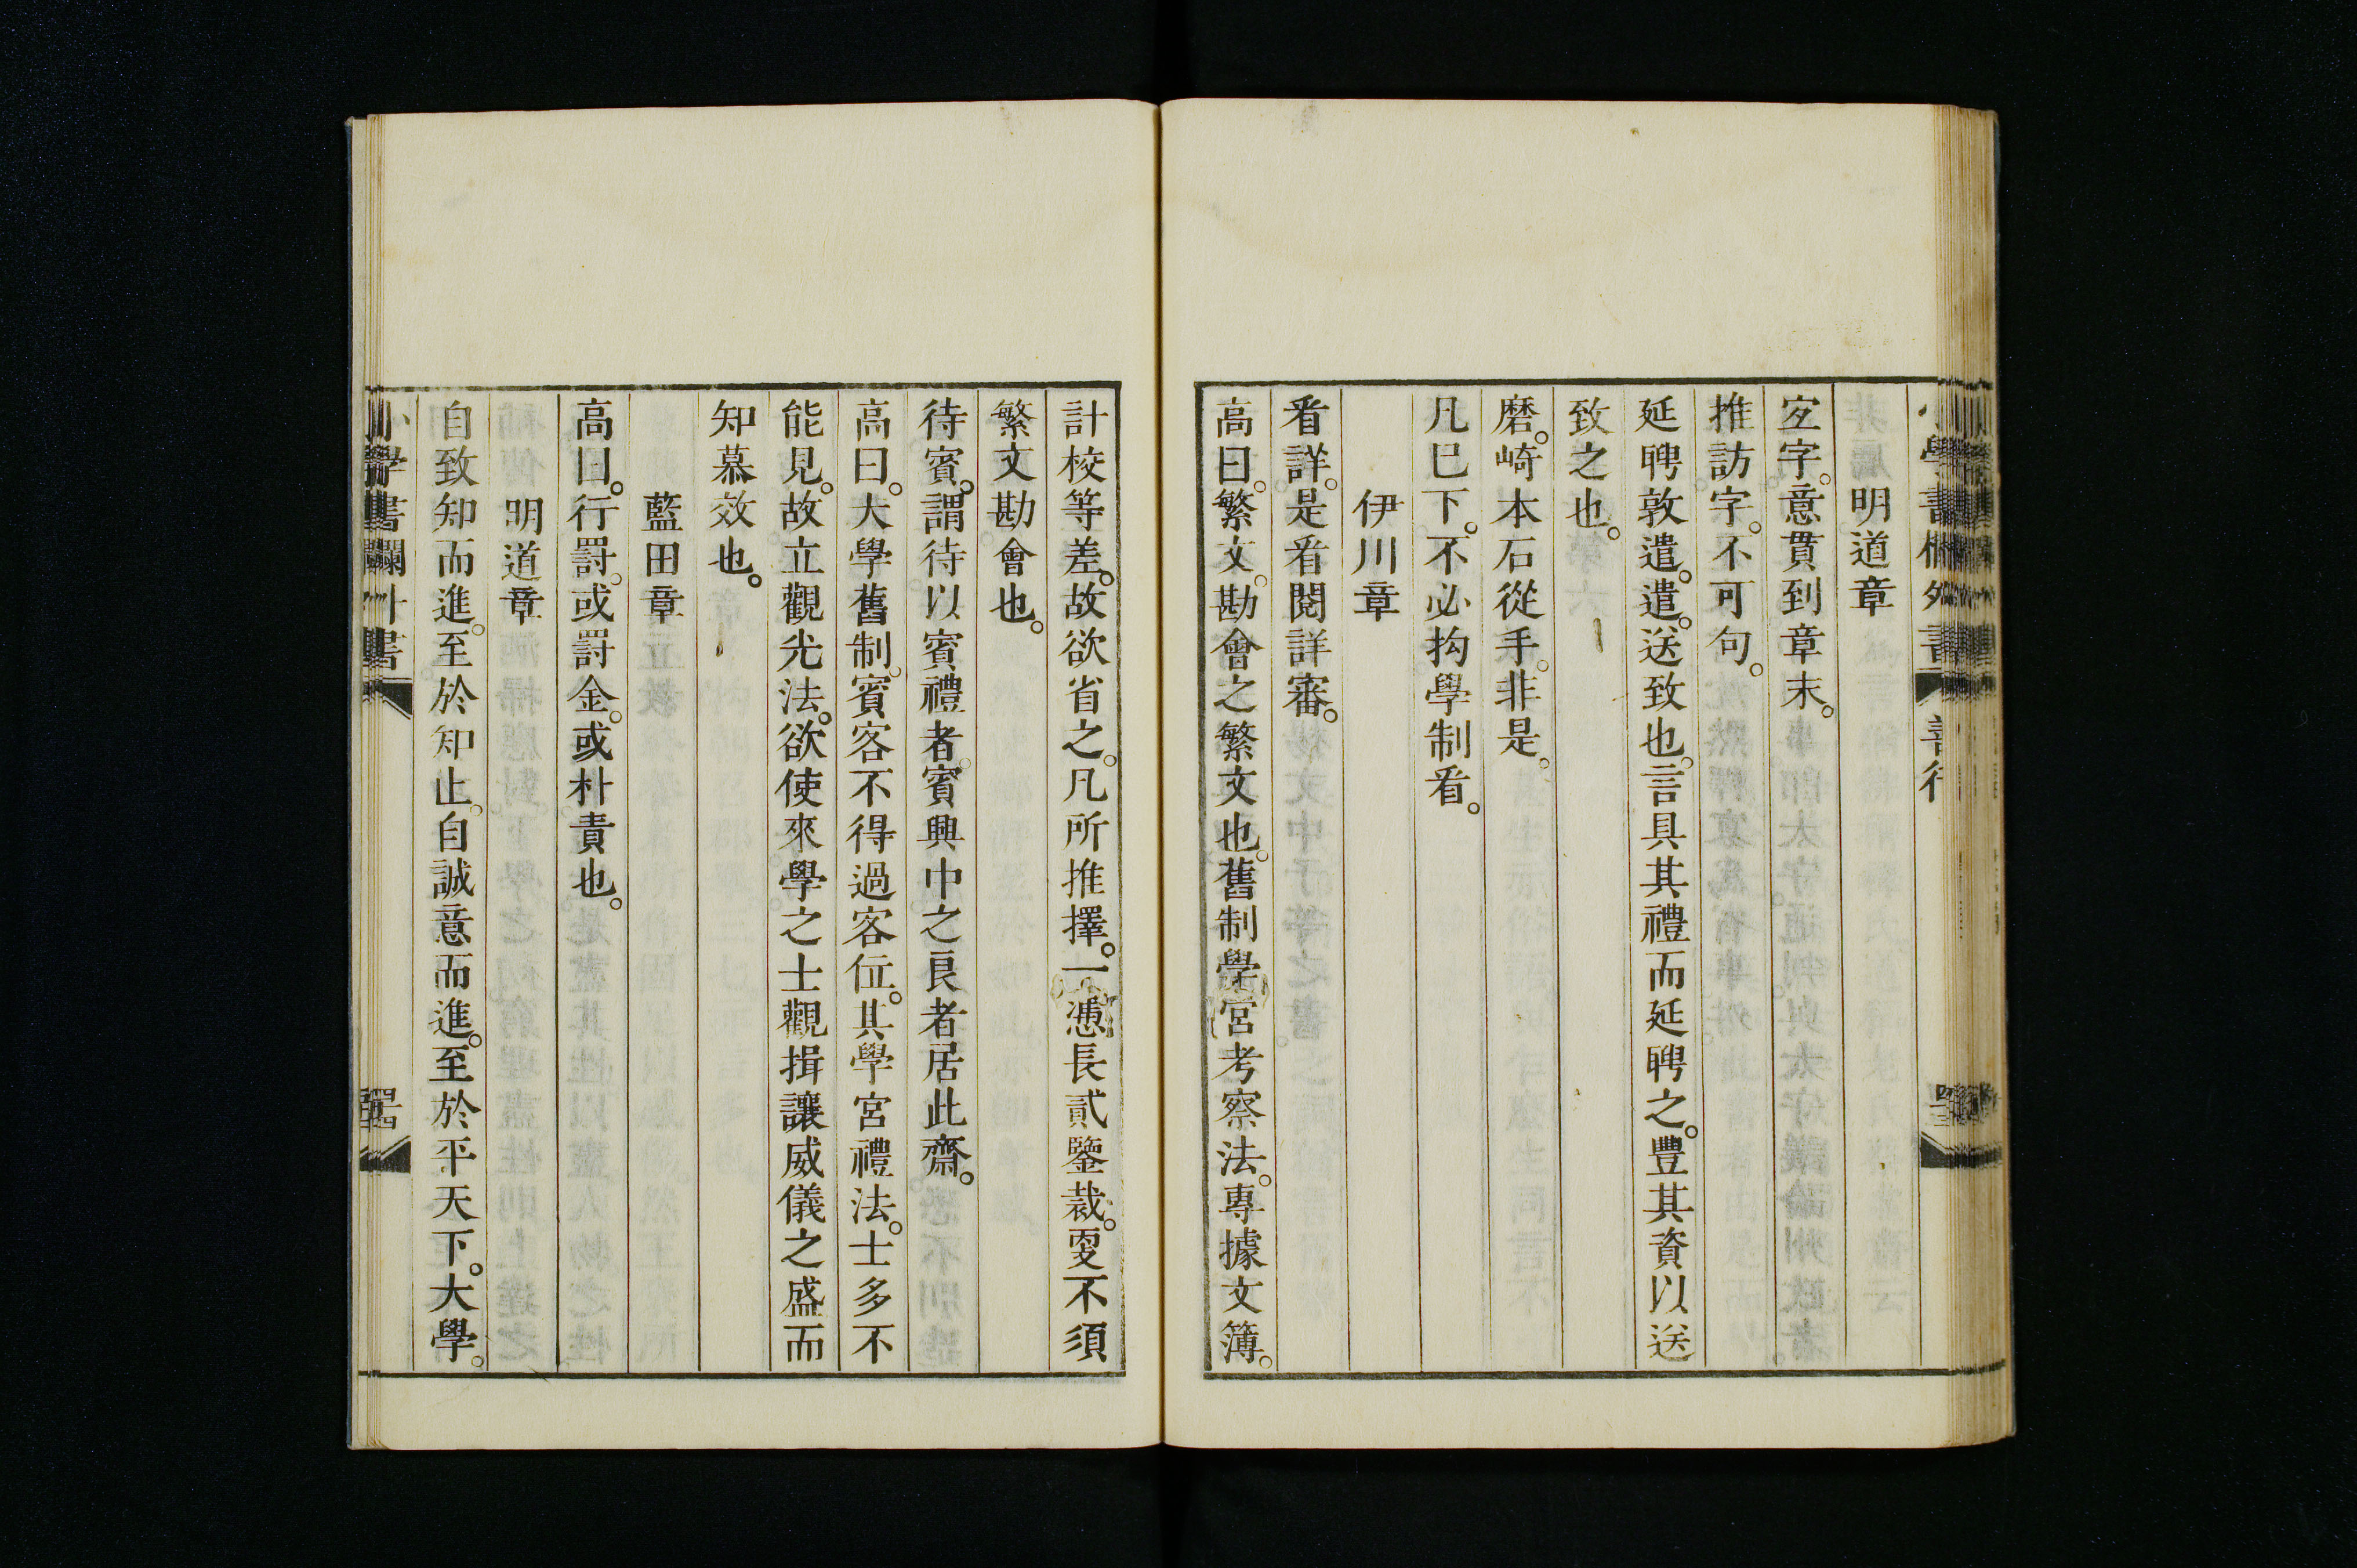 小學書欄外書 善行
明道章
㝎字。意貫到章末。
推訪字。不可句。
延聘敦遣。遣。送致也。言具其禮而延聘之。豐其資以送
致之也。
磨。崎本石從手。非是。
凡巳下。不必拘學制㸔。
伊川章
㸔詳。是㸔閱詳審。
高曰。繁文。勘會之繁文也。舊制學宮考察法。專據文簿。
計校等差。故欲省之。凡所推擇。一憑長貳鑒裁。㪅不須
繁文勘會也。
待賓。謂待以賓禮者。賓興中之良者居此齋。
高曰。大學舊制。賓客不得過客位。其學宮禮法。士多不
能見。故立觀光法。欲使來學之士觀揖讓威儀之盛而
知慕效也。
藍田章
高曰。行罸。或罸金。或朴責也。
明道章
自致知而進。至於知止。自誠意而進。至於平天下。大學。